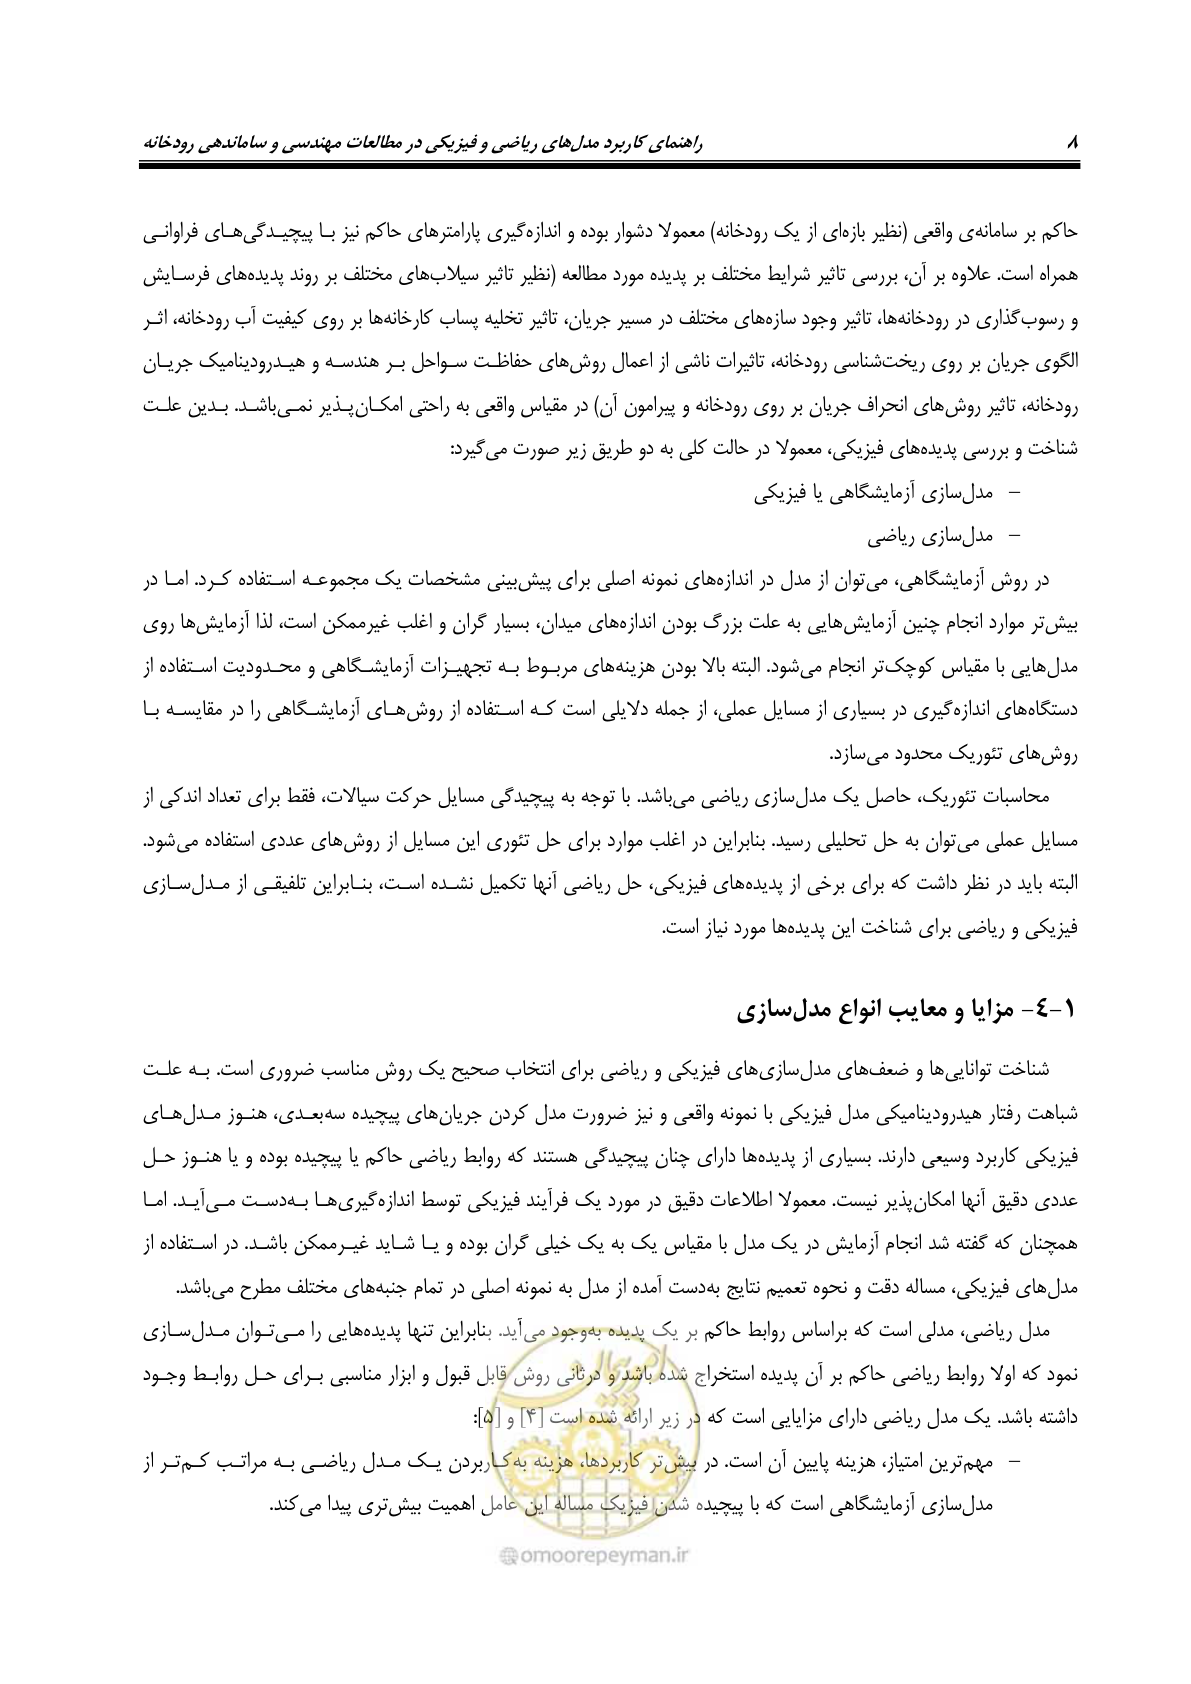 ۸
راهنمای کاربرد مدل‌های ریاضی و فیزیکی در مطالعات مهندسی و ساماندهی رودخانه
حاکم بر سامانه‌ی واقعی (نظیر بازه‌ای از یک رودخانه) معمولا دشوار بوده و اندازه‌گیری پارامترهای حاکم نیز بـا پیچیـدگی‌هـای فراوانـی
همراه است. علاوه بر آن، بررسی تاثیر شرایط مختلف بر پدیده مورد مطالعه (نظیر تاثیر سیلاب‌های مختلف بر روند پدیده‌های فرسـایش
و رسوب‌گذاری در رودخانه‌ها، تاثیر وجود سازه‌های مختلف در مسیر جریان، تاثیر تخلیه پساب کارخانه‌ها بر روی کیفیت آب رودخانه، اثـر
الگوی جریان بر روی ریخت‌شناسی رودخانه، تاثیرات ناشی از اعمال روش‌های حفاظـت سـواحل بـر هندسـه و هیـدرودینامیک جریـان
رودخانه، تاثیر روش‌های انحراف جریان بر روی رودخانه و پیرامون آن) در مقیاس واقعی به راحتی امکـان‌پـذیر نمـی‌باشـد. بـدین علـت
شناخت و بررسی پدیده‌های فیزیکی، معمولا در حالت کلی به دو طریق زیر صورت می‌گیرد:
– مدل‌سازی آزمایشگاهی یا فیزیکی
– مدل‌سازی ریاضی
در روش آزمایشگاهی، می‌توان از مدل در اندازه‌های نمونه اصلی برای پیش‌بینی مشخصات یک مجموعـه اسـتفاده کـرد. امـا در
بیش‌تر موارد انجام چنین آزمایش‌هایی به علت بزرگ بودن اندازه‌های میدان، بسیار گران و اغلب غیرممکن است، لذا آزمایش‌ها روی
مدل‌هایی با مقیاس کوچک‌تر انجام می‌شود. البته بالا بودن هزینه‌های مربـوط بـه تجهیـزات آزمایشـگاهی و محـدودیت اسـتفاده از
دستگاه‌های اندازه‌گیری در بسیاری از مسایل عملی، از جمله دلایلی است کـه اسـتفاده از روش‌هـای آزمایشـگاهی را در مقایسـه بـا
روش‌های تئوریک محدود می‌سازد.
محاسبات تئوریک، حاصل یک مدل‌سازی ریاضی می‌باشد. با توجه به پیچیدگی مسایل حرکت سیالات، فقط برای تعداد اندکی از
مسایل عملی می‌توان به حل تحلیلی رسید. بنابراین در اغلب موارد برای حل تئوری این مسایل از روش‌های عددی استفاده می‌شود.
البته باید در نظر داشت که برای برخی از پدیده‌های فیزیکی، حل ریاضی آنها تکمیل نشـده اسـت، بنـابراین تلفیقـی از مـدل‌سـازی
فیزیکی و ریاضی برای شناخت این پدیده‌ها مورد نیاز است.
۱-۴- مزایا و معایب انواع مدل‌سازی
شناخت توانایی‌ها و ضعف‌های مدل‌سازی‌های فیزیکی و ریاضی برای انتخاب صحیح یک روش مناسب ضروری است. بـه علـت
شباهت رفتار هیدرودینامیکی مدل فیزیکی با نمونه واقعی و نیز ضرورت مدل کردن جریان‌های پیچیده سه‌بعـدی، هنـوز مـدل‌هـای
فیزیکی کاربرد وسیعی دارند. بسیاری از پدیده‌ها دارای چنان پیچیدگی هستند که روابط ریاضی حاکم یا پیچیده بوده و یا هنـوز حـل
عددی دقیق آنها امکان‌پذیر نیست. معمولا اطلاعات دقیق در مورد یک فرآیند فیزیکی توسط اندازه‌گیری‌هـا بـه‌دسـت مـی‌آیـد. امـا
همچنان که گفته شد انجام آزمایش در یک مدل با مقیاس یک به یک خیلی گران بوده و یـا شـاید غیـرممکن باشـد. در اسـتفاده از
مدل‌های فیزیکی، مساله دقت و نحوه تعمیم نتایج به‌دست آمده از مدل به نمونه اصلی در تمام جنبه‌های مختلف مطرح می‌باشد.
مدل ریاضی، مدلی است که براساس روابط حاکم بر یک پدیده به‌وجود می‌آید. بنابراین تنها پدیده‌هایی را مـی‌تـوان مـدل‌سـازی
نمود که اولا روابط ریاضی حاکم بر آن پدیده استخراج شده باشد و درثانی روش قابل قبول و ابزار مناسبی بـرای حـل روابـط وجـود
داشته باشد. یک مدل ریاضی دارای مزایایی است که در زیر ارائه شده است [۴] و [۵]:
– مهم‌ترین امتیاز، هزینه پایین آن است. در بیش‌تر کاربردها، هزینه به‌کـاربردن یـک مـدل ریاضـی بـه مراتـب کـم‌تـر از
مدل‌سازی آزمایشگاهی است که با پیچیده شدن فیزیک مساله این عامل اهمیت بیش‌تری پیدا می‌کند.
امور پیمان
@omoorepeyman.ir